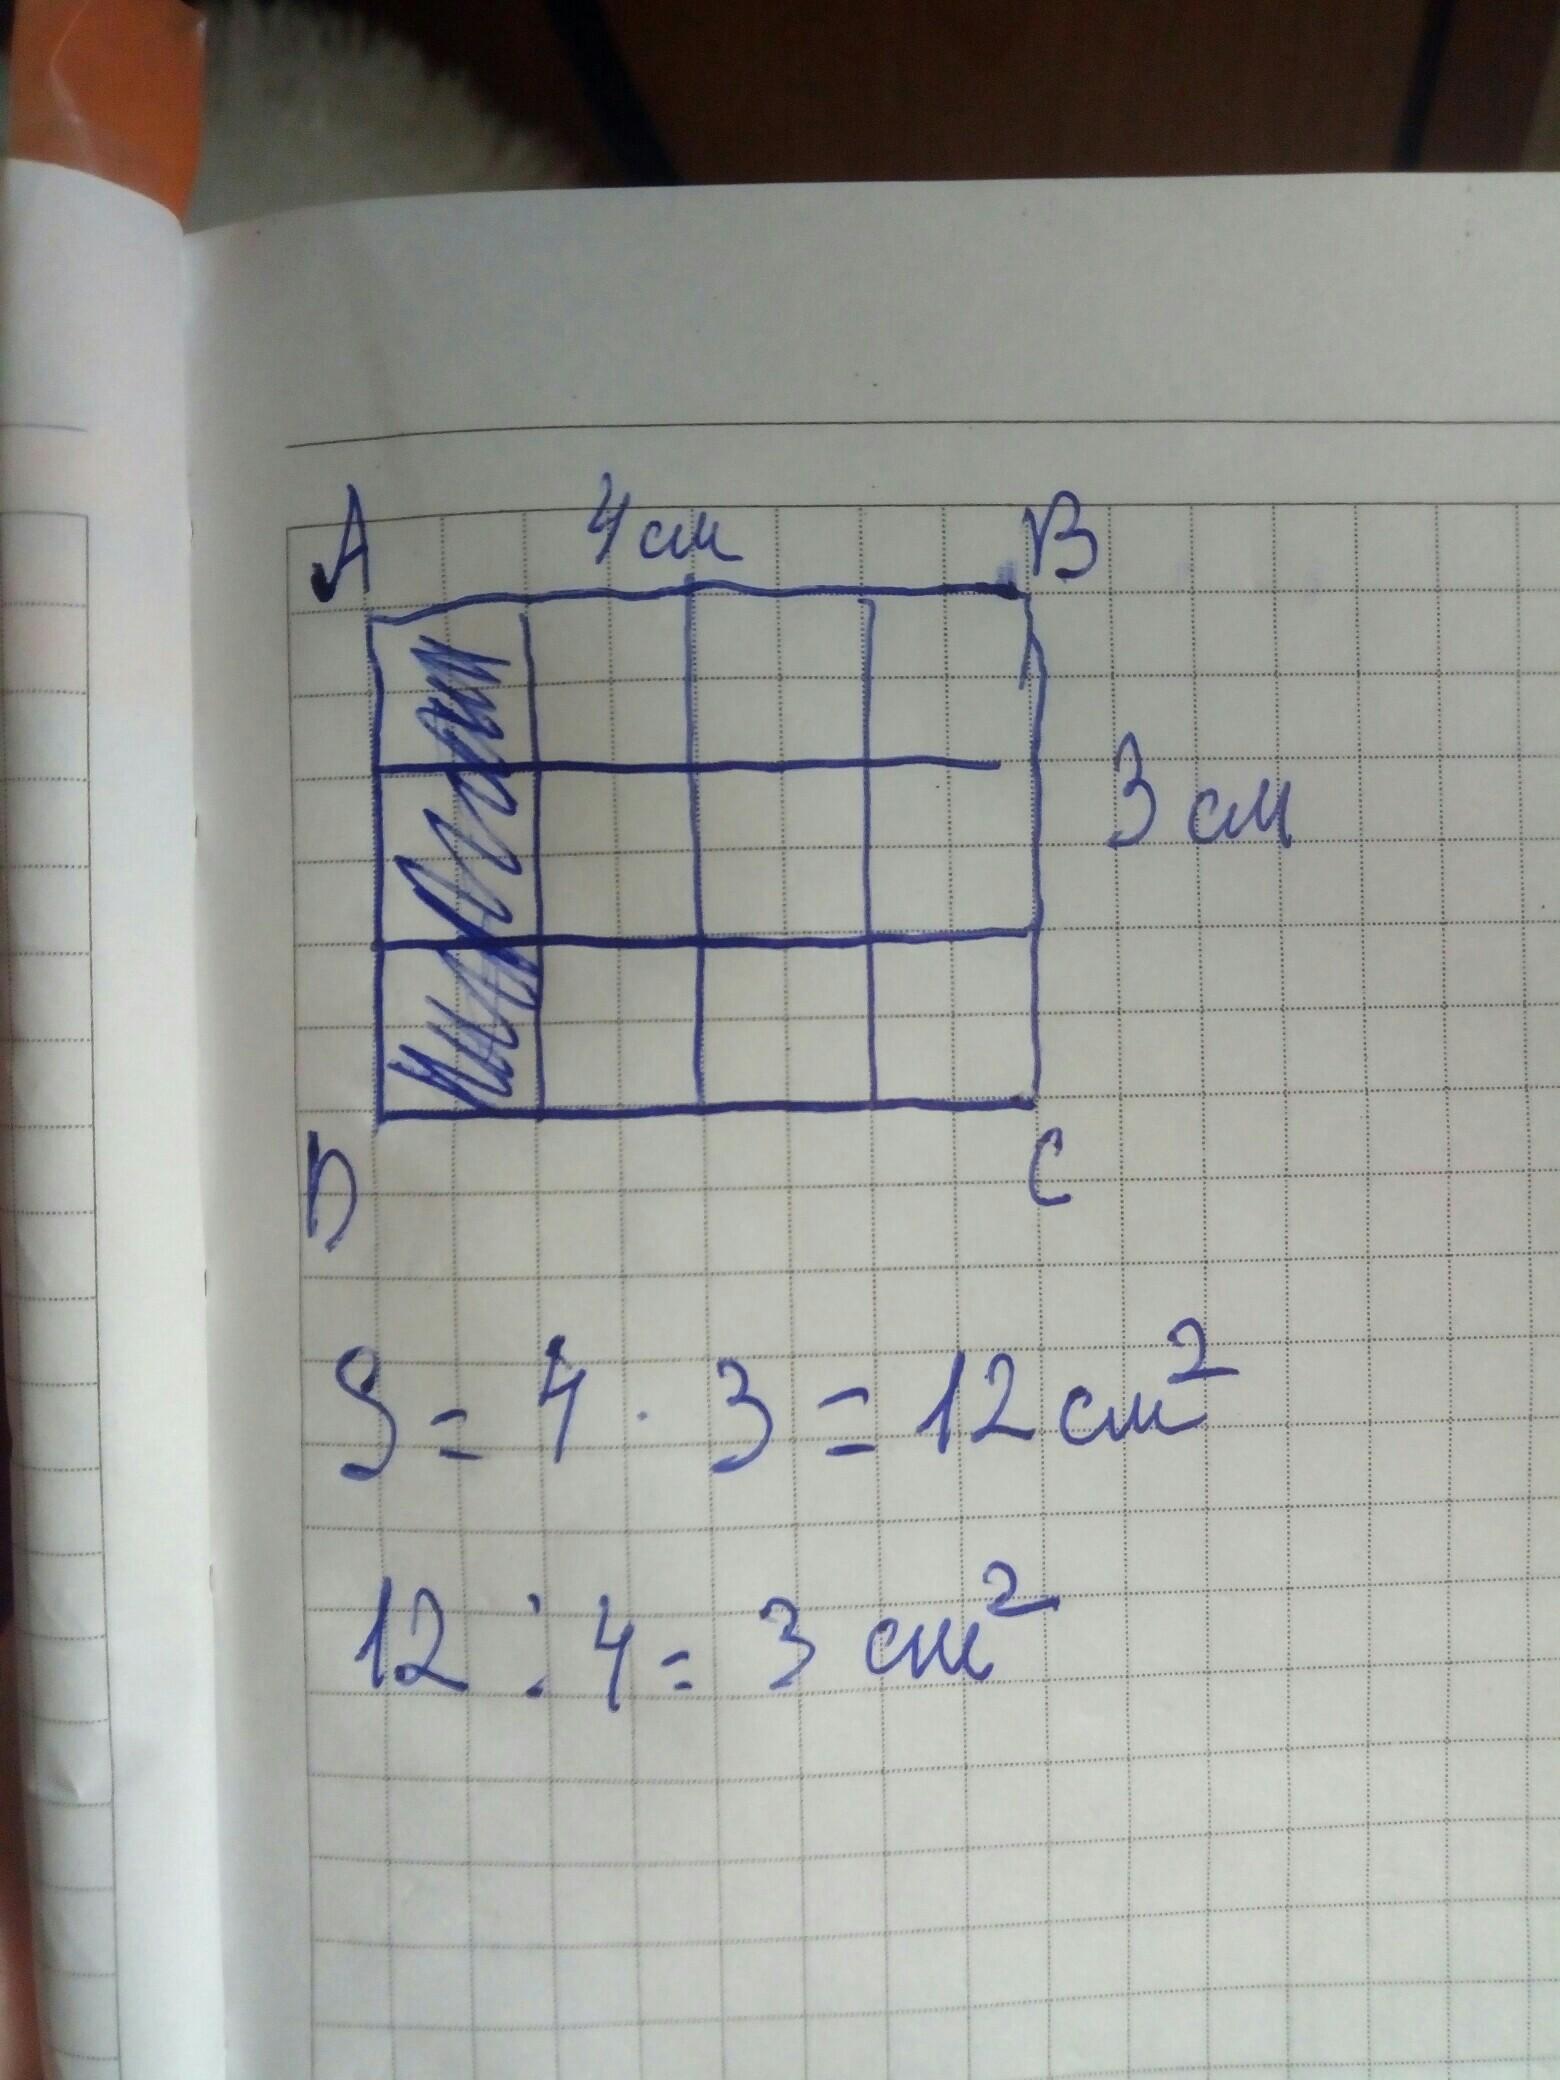 A 4 см B
3 см
D C
S = 4 · 3 = 12 см²
12 : 4 = 3 см²